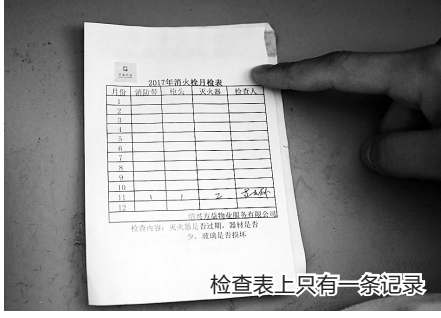 2017年消火栓月检表
月份 消防带 枪头 灭火器 检查人
1
2
3
4
5
6
7
8
9
10
11 1 1 2
12
绍兴方益物业服务有限公司
检查内容：灭火器是否过期，器材是否
少，玻璃是否损坏
检查表上只有一条记录